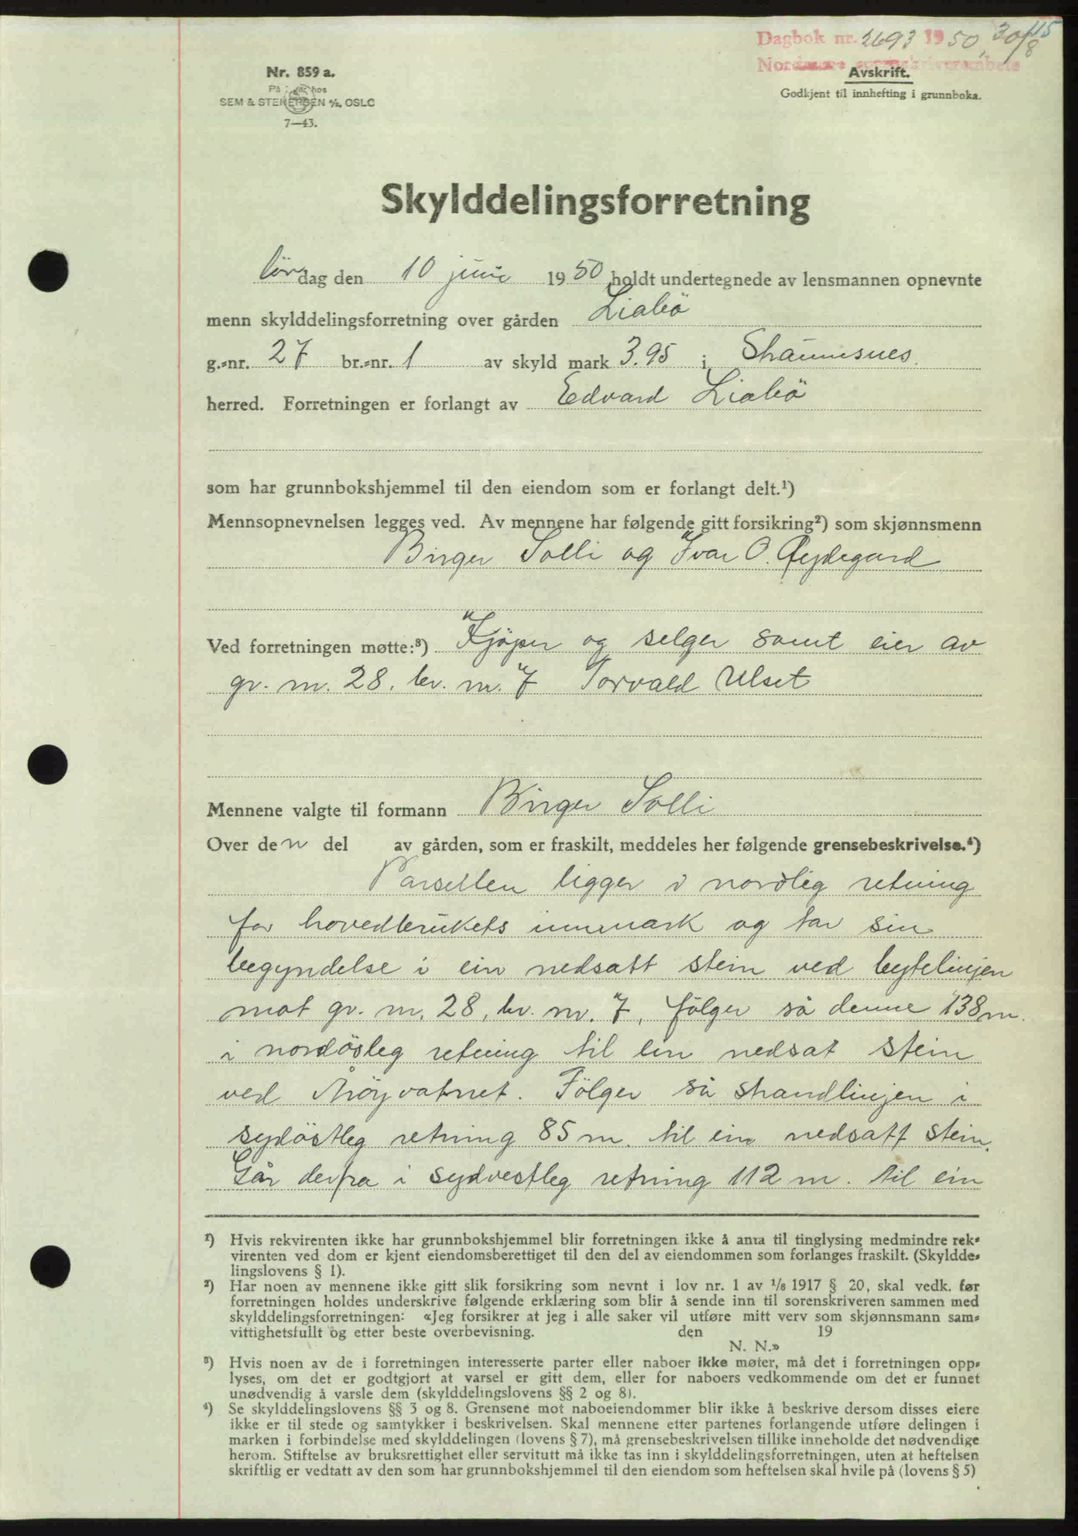 Dagbok nr. 2693 1950, 30/8 115
Nordmøre sorenskriverembete
Avskrift.
Godkjent til innhefting i grunnboka.
Nr. 859 a.
På hos
SEM & STENERSEN A/S, OSLO
7—43.
Skylddelingsforretning
lørdag den 10 juni 1950 holdt undertegnede av lensmannen opnevnte
menn skylddelingsforretning over gården Liabö
g.-nr. 27 br.-nr. 1 av skyld mark 3.95 i Straumsnes.
herred. Forretningen er forlangt av Edvard Liabö
som har grunnbokshjemmel til den eiendom som er forlangt delt.¹)
Mennsopnevnelsen legges ved. Av mennene har følgende gitt forsikring²) som skjønnsmenn
Birger Solli og Ivar O. Øydegard
Ved forretningen møtte:³) Kjöper og selger samt eier av
gr. nr. 28. br. nr. 7 Torvald Ulset
Mennene valgte til formann Birger Solli
Over den del av gården, som er fraskilt, meddeles her følgende grensebeskrivelse.⁴)
Parsellen ligger i nordlig retning
for hovedbrukets innmark og tar sin
begyndelse i ein nedsatt stein ved bytelinjen
mot gr. nr. 28, br. nr. 7, fölger så denne 138 m.
i nordöstleg retning til ein nedsat stein
ved vatnet. Fölger så strandlinjen i
sydöstleg retning 85 m. til ein nedsatt stein.
Går derfra i sydvestleg retning 112 m. til ein
¹) Hvis rekvirenten ikke har grunnbokshjemmel blir forretningen ikke å anta til tinglysing medmindre rek-
virenten ved dom er kjent eiendomsberettiget til den del av eiendommen som forlanges fraskilt. (Skyldde-
lingslovens § 1).
²) Har noen av mennene ikke gitt slik forsikring som nevnt i lov nr. 1 av 1/6 1917 § 20, skal vedk. før
forretningen holdes underskrive følgende erklæring som blir å sende inn til sorenskriveren sammen med
skylddelingsforretningen: «Jeg forsikrer at jeg i alle saker vil utføre mitt verv som skjønnsmann sam-
vittighetsfullt og etter beste overbevisning. den 19
N. N.»
³) Hvis noen av de i forretningen interesserte parter eller naboer ikke møter, må det i forretningen opp-
lyses, om det er godtgjort at varsel er gitt dem, eller for naboers vedkommende om det er funnet
unødvendig å varsle dem (skylddelingslovens §§ 2 og 8).
⁴) Se skylddelingslovens §§ 3 og 8. Grensene mot naboeiendommer blir ikke å beskrive dersom disses eiere
ikke er til stede og samtykker i beskrivelsen. Skal mennene etter partenes forlangende utføre delingen i
marken i forbindelse med skylddelingen (lovens § 7), må grensebeskrivelsen tillike inneholde det nødvendige
herom. Stiftelse av bruksrettighet eller servitutt må ikke tas inn i skylddelingsforretningen, uten at heftelsen
skriftlig er vedtatt av den som har grunnbokshjemmel til den eiendom som heftelsen skal hvile på (lovens § 5)